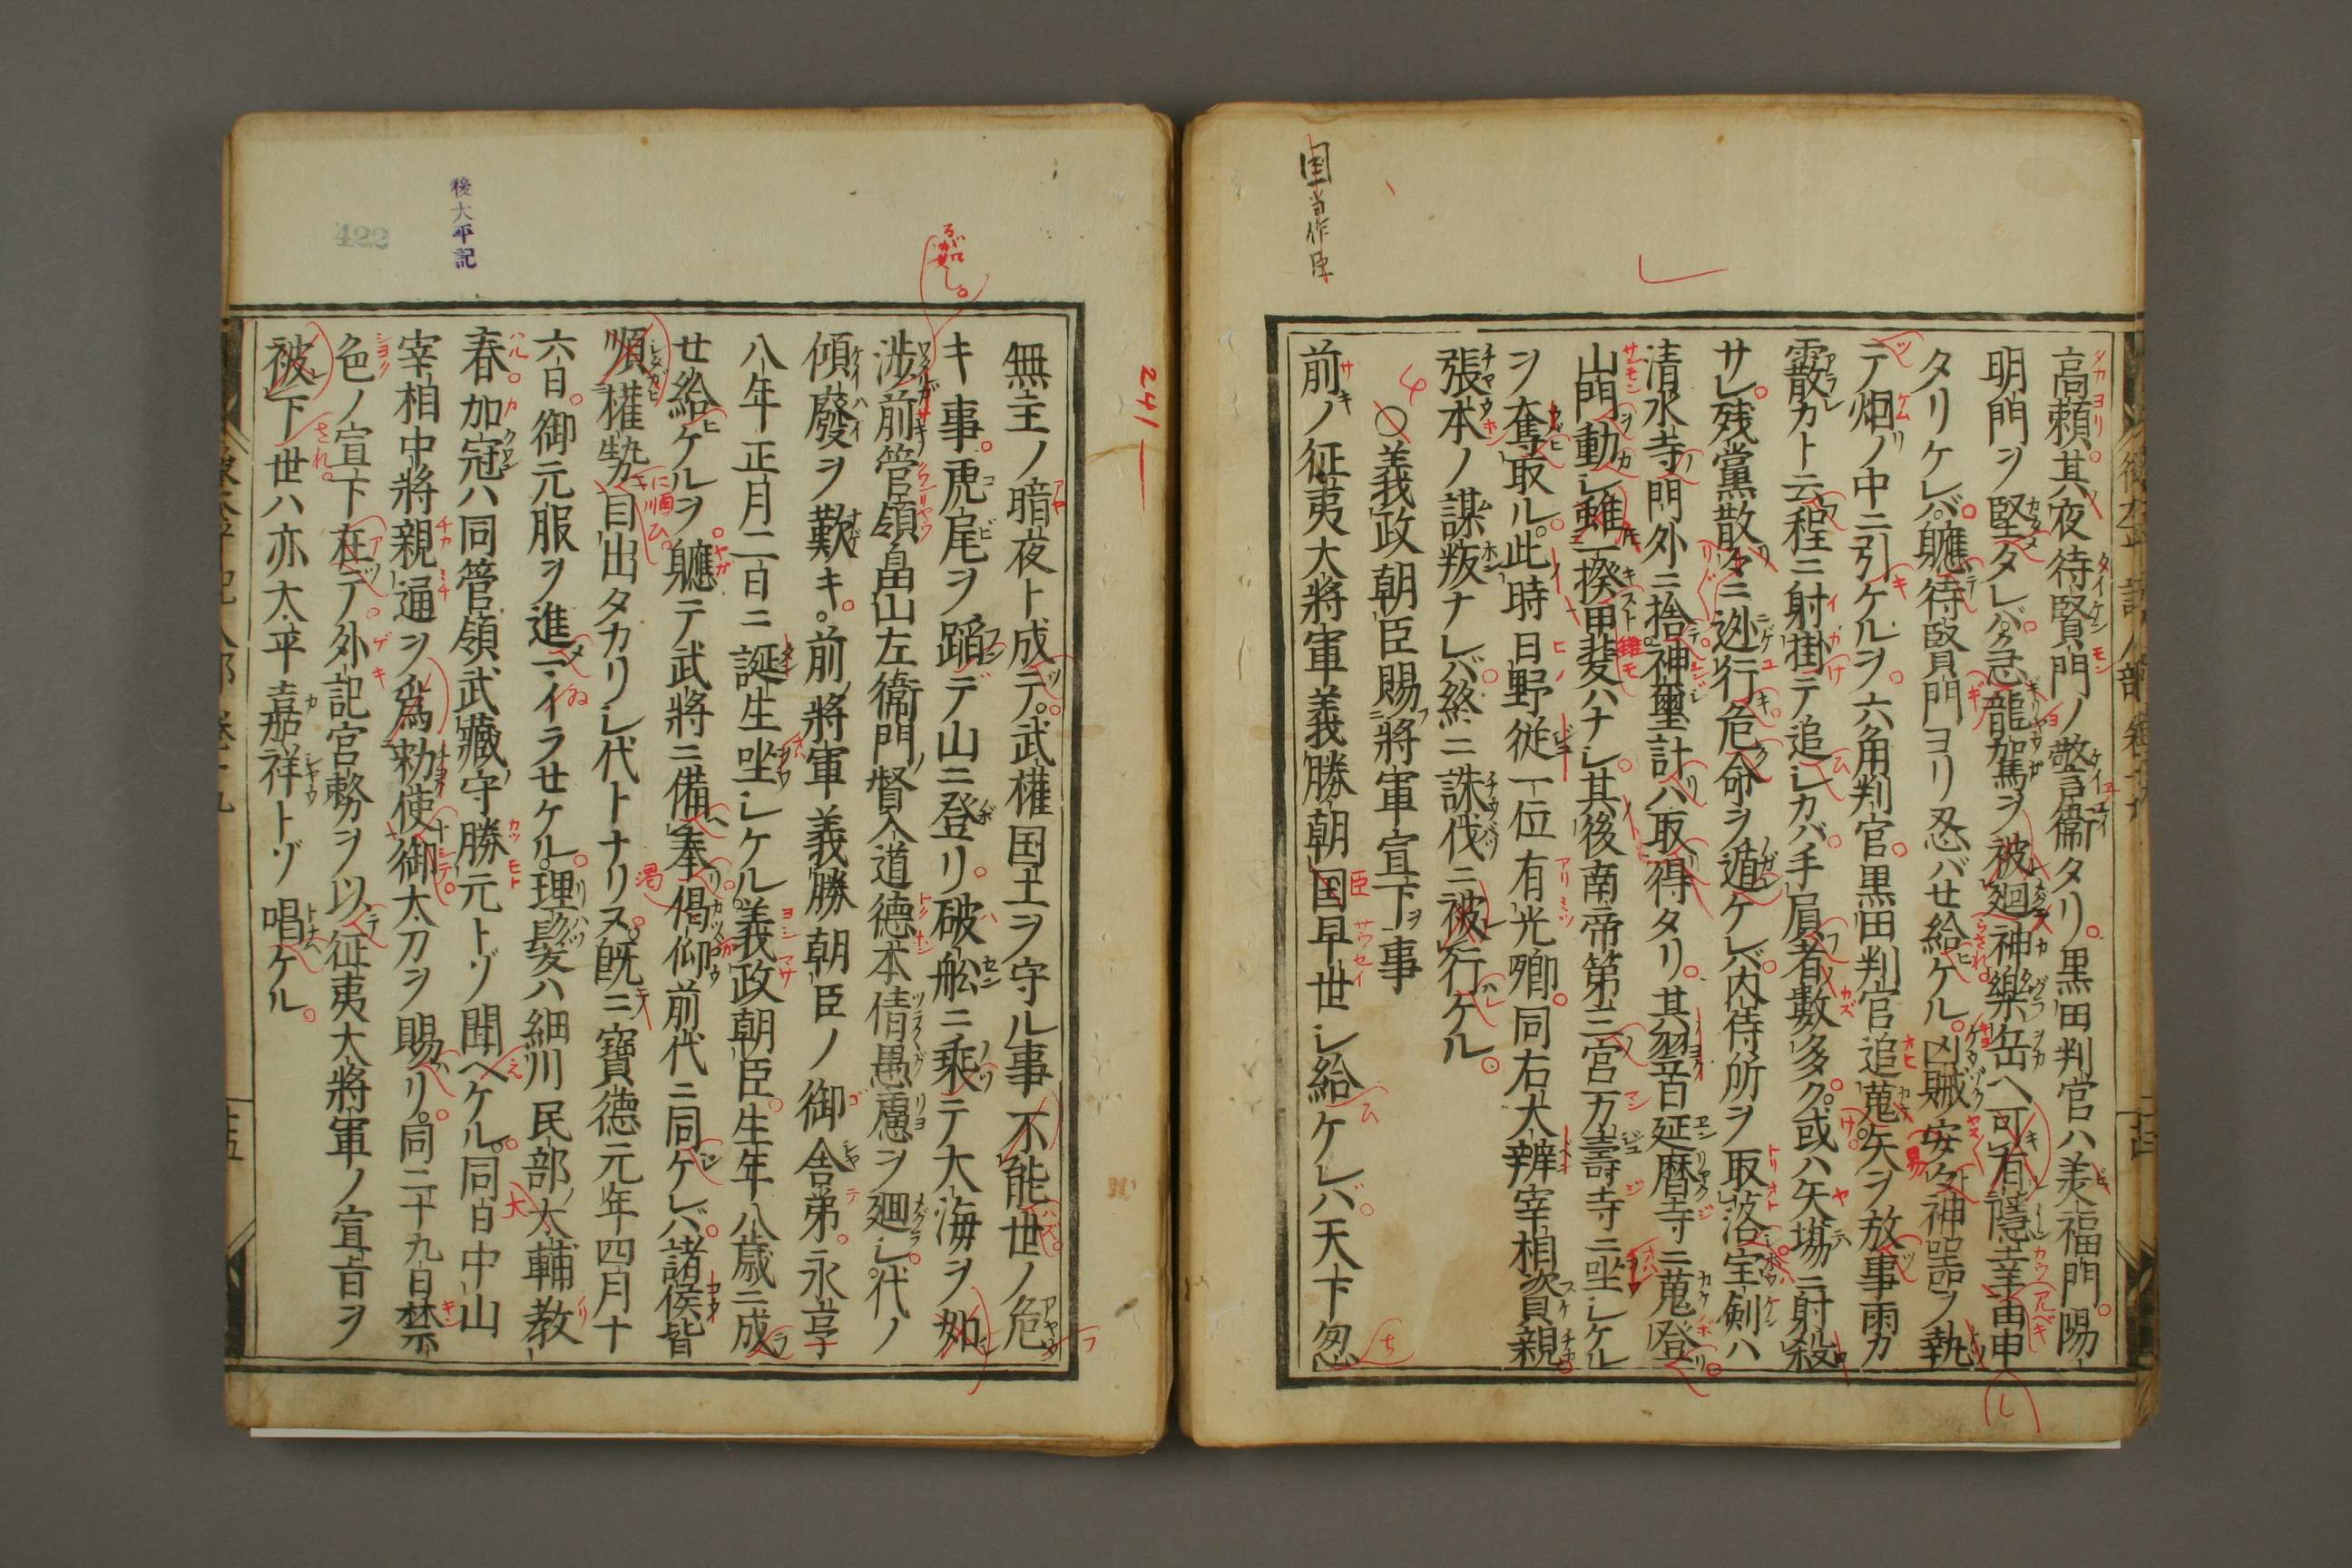 国当作臣
高頼其夜待賢門ノ警衞タリ黒田判官ハ美福門陽
明門ヲ堅タレバ急龍駕ヲ被廻神樂岳ヘ可有隱幸由申
タリケレバ軈待賢門ヨリ忍バせ給ケル凶賊安々神噐ヲ執
テ烟ノ中ニ引ケルヲ六角判官黒田判官追蒐矢ヲ放事雨カ
霰カト云程ニ射掛テ追シカバ手屓者數多ク或ハ矢塲ニ射殺
サレ残黨散々ニ迯行危命ヲ遁ケレバ内侍所ヲ取落宝剣ハ
清水寺門外ニ捨神璽計ハ取得タリ其翌日延暦寺ニ蒐登
山門動シ雖一揆甲斐ハナシ其後南帝第三宮万壽寺ニ坐シケル
ヲ奪取ル此時日野従一位有光卿同右大辨宰相資親
張本ノ謀叛ナレバ終ニ誅伐ニ被行ケル
○義政朝臣賜將軍宣下ヲ事
前ノ征夷大將軍義勝朝国早世シ給ケレバ天下忽
241
無主ノ暗夜ト成テ武權国土ヲ守ル事不能世ノ危
キ事虎尾ヲ蹈デ山ニ登リ破舩ニ乗テ大海ヲ如
渉前管領畠山左衞門督入道德本倩愚慮ヲ廻シ代ノ
傾廢ヲ歎キ前將軍義勝朝臣ノ御舎弟永享
八年正月二日ニ誕生坐シケル義政朝臣生年八歳ニ成
せ給ケルヲ軈テ武將ニ備奉偈仰前代ニ同ケレバ諸侯皆
順權勢目出タカリシ代トナリヌ既ニ寶德元年四月十
六日御元服ヲ進ラせケル理髪ハ細川民部大輔教
春加冠ハ同管領武藏守勝元トゾ聞ヘケル同日中山
宰相中將親通ヲ爲勅使御太刀ヲ賜リ同二十九日禁
色ノ宣下在テ外記官務ヲ以征夷大將軍ノ宣旨ヲ
被下世ハ亦太平嘉祥トゾ唱ケル
後太平記
422